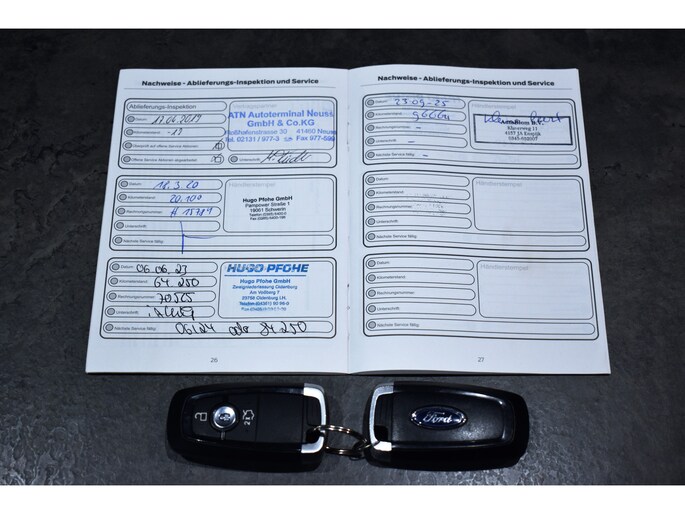 Nachweise - Ablieferungs-Inspektion und Service
Ablieferungs-Inspektion
Datum 17.06.2019
Kilometerstand - 17
Offene Service Aktionen abgearbeitet
Unterschrift
ATN Autoterminal Neuss
GmbH & Co.KG
Floßhafenstrasse 30 41460 Neuss
Tel. 02131 / 977-3 Fax 977-599
Datum 18.3.20
Kilometerstand 20.100
Rechnungsnummer
Unterschrift
Nächste Service fällig:
Händlerstempel
Hugo Pfohe GmbH
Pampower Straße 1
19061 Schwerin
Datum 06.06.23
Kilometerstand 64.250
Rechnungsnummer 70525
Unterschrift
Nächste Service fällig: 06/24 oder 84.250
HUGO PFOHE
Hugo Pfohe GmbH
Zweigniederlassung Oldenburg
Am Voßberg 7
23758 Oldenburg i.H.
26
Nachweise - Ablieferungs-Inspektion und Service
Datum 23-09-25
Kilometerstand
Rechnungsnummer -
Unterschrift -
Nächste Service fällig: -
Händlerstempel
Datum
Kilometerstand
Rechnungsnummer
Unterschrift
Nächste Service fällig:
Händlerstempel
Datum
Kilometerstand
Rechnungsnummer
Unterschrift
Nächste Service fällig:
Händlerstempel
27
Ford